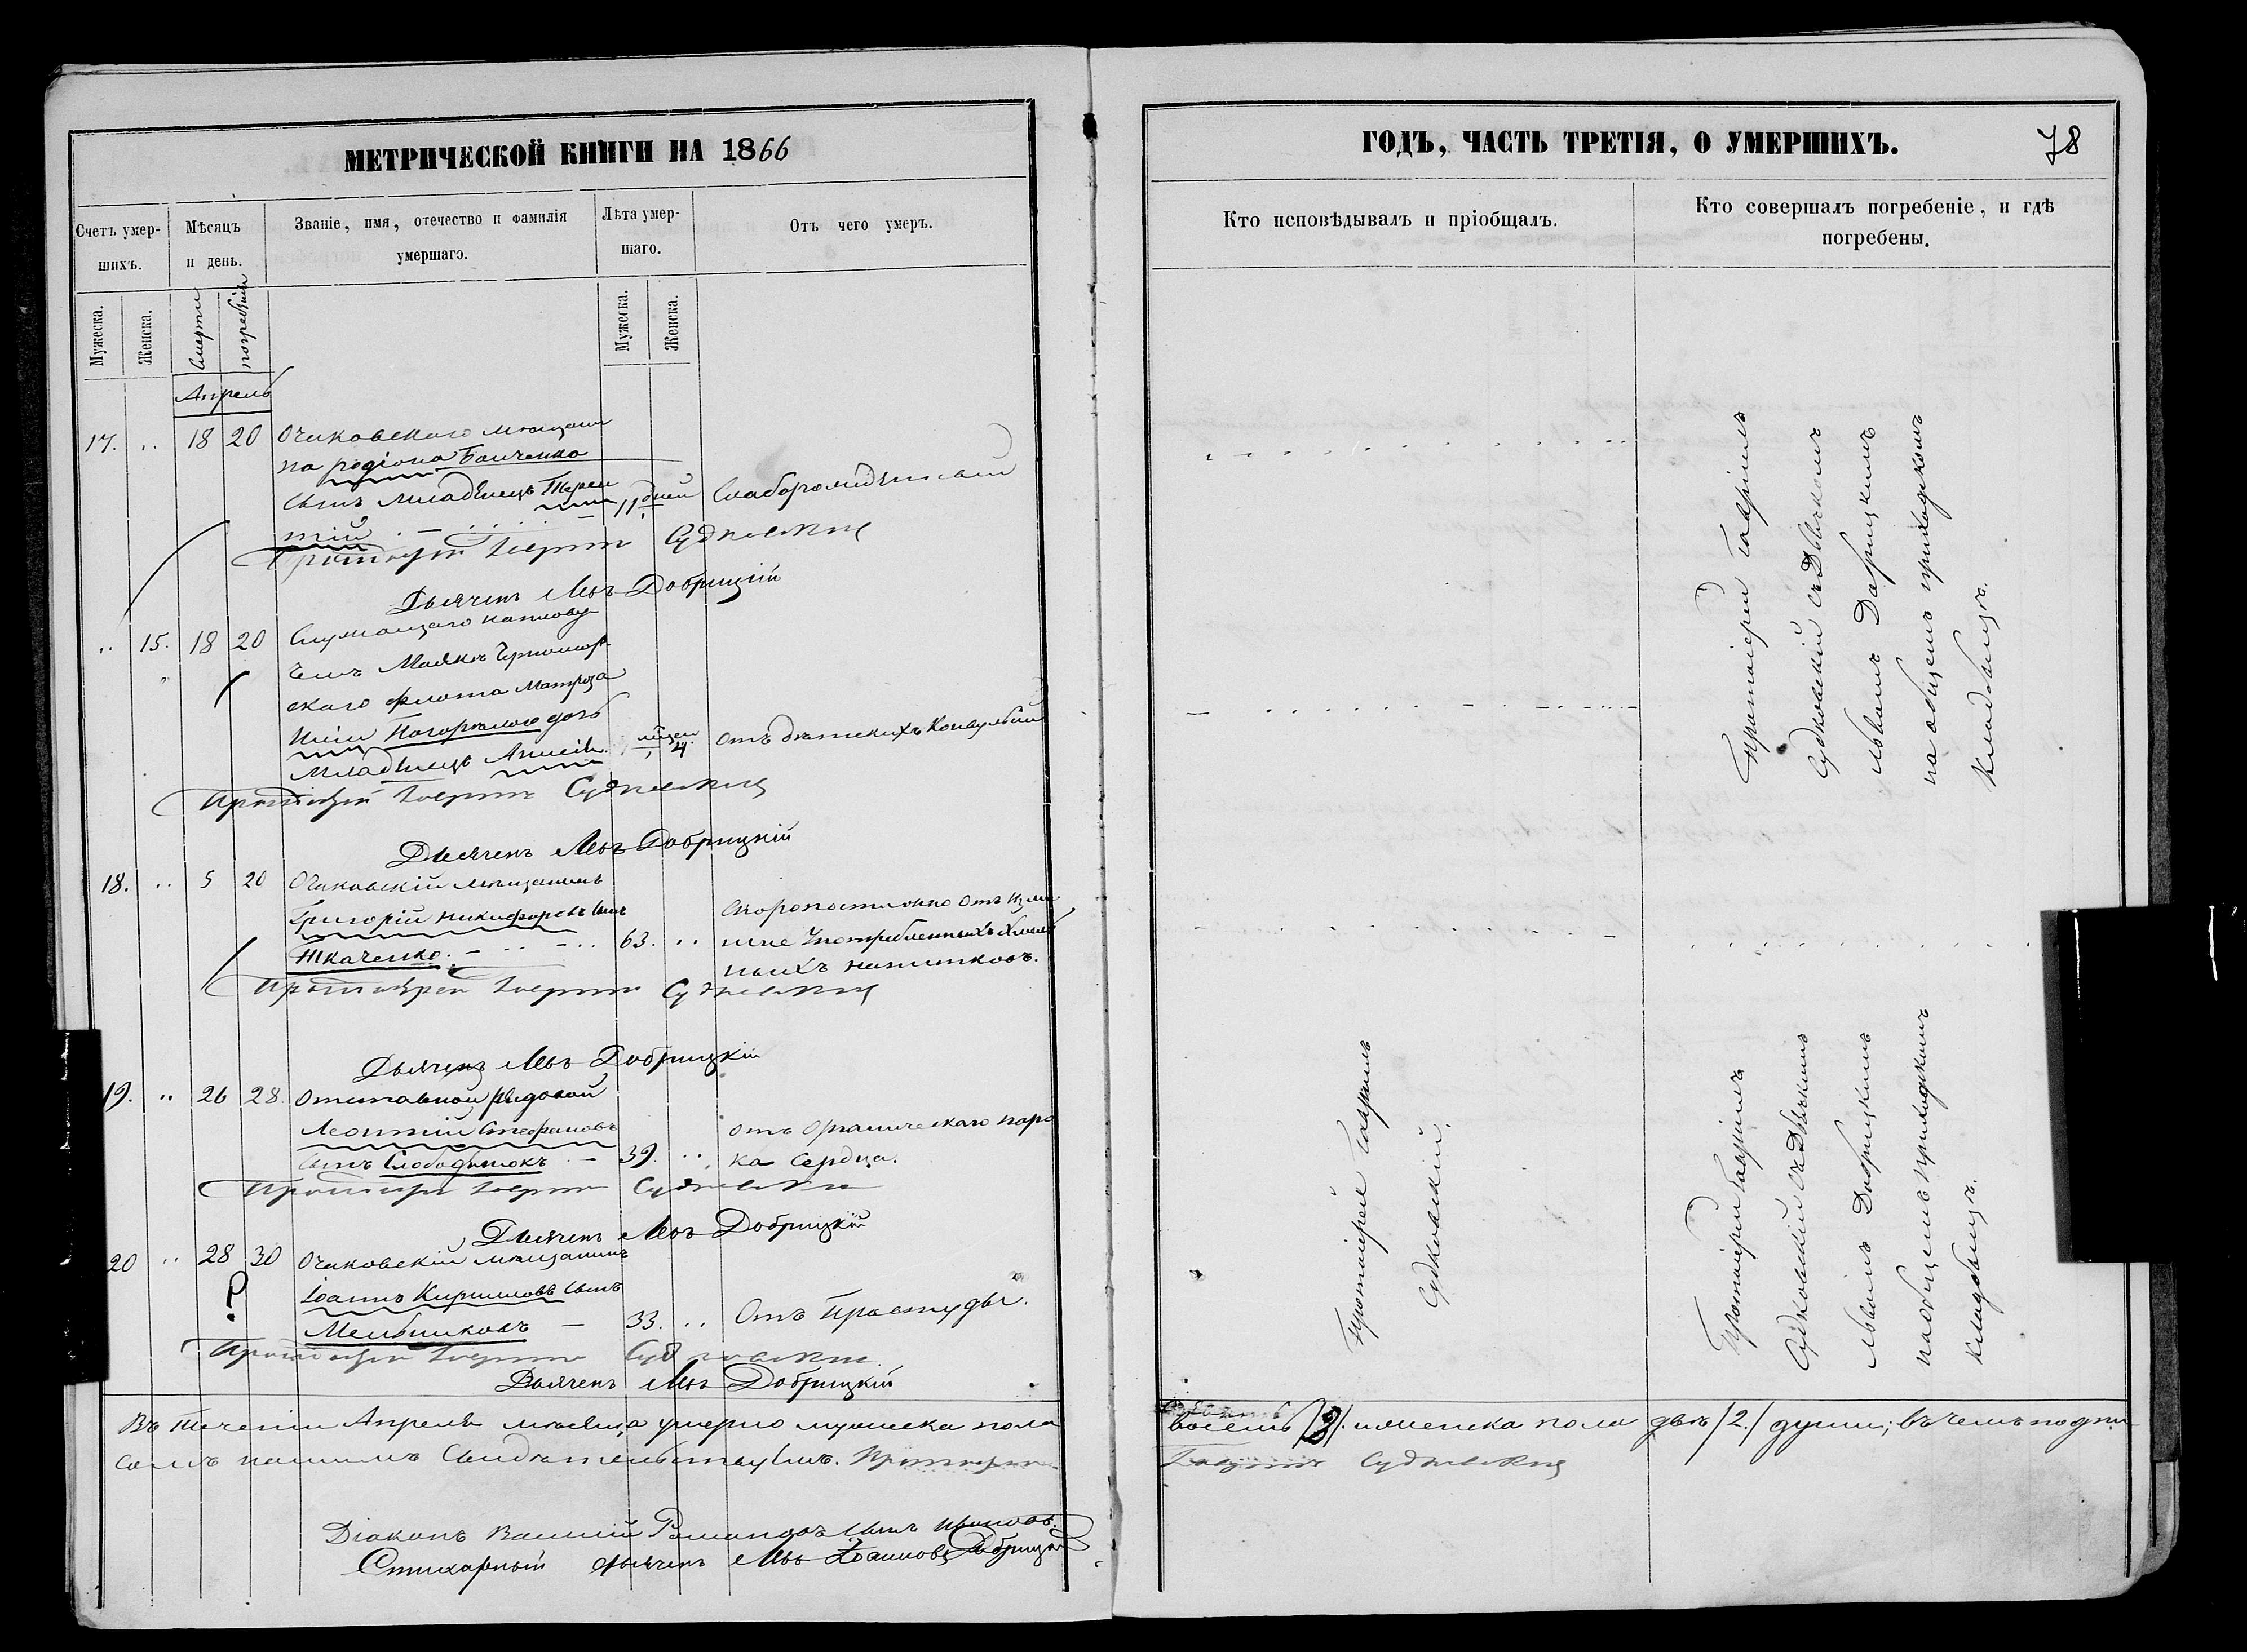 МЕТРИЧЕСКОЙ КНИГИ НА 1866
Счетъ умер-
шихъ.
Мѣсяцъ
и день.
Званіе, имя, отечество и фамилія
умершаго.
Лѣта умер-
шаго.
Отъ чего умеръ.
Мужеска.
Женска.
Смерти
погребенія
Мужеска.
Женска.
Апрель
17. 18 20 Очаковскаго мѣщани
на родіона Бойченко
сынъ младенецъ Терен
тій
11 дней
Протоіерей Гавріилъ Судковскій
Дьячекъ Левъ Добрицкій
15. 18 20 Служащаго на плову
чемъ Маякѣ Черномор
скаго флота Матроза
Погорѣлого дочь
младенецъ
4 мѣсяц
отъ дѣтскихъ Конвульсій
Протоіерей Гавріилъ Судковскій
Дьячекъ Левъ Добрицкій
18. 5 20 Очаковскій мѣщанинъ
Григорій Никифоровъ сынъ
Ткаченко.
63.
Скоропостижно отъ Изли
шне Употребленныхъ Хмель
ныхъ напитковъ.
Протоіерей Гавріилъ Судковскій
Дьячекъ Левъ Добрицкій
19. 26 28. Отставной рядовой
Леонтій Стефановъ
сынъ Слободянюкъ
39.
отъ Органическаго поро
ка Сердца.
Протоіерей Гавріилъ Судковскій
Дьячекъ Левъ Добрицкій
20 28 30 Очаковскій мѣщанинъ
Іоаннъ Кирилловъ сынъ
Мельниковъ
33.
Отъ Простуды.
?
Протоіерей Гавріилъ Судковскій
Дьячекъ Левъ Добрицкій
Въ теченіи Апрѣля мѣсяца умерло мужеска пола
самъ нашимъ Свидѣтельствуемъ. Протоіерей
Діаконъ Василій Романовъ сынъ
Стихарный дьячекъ Левъ Іоанновъ Добрицкій
ГОДЪ, ЧАСТЬ ТРЕТІЯ, О УМЕРШИХЪ.
78
Кто исповѣдывалъ и пріобщалъ.
Кто совершалъ погребеніе, и гдѣ
погребены.
Протоіерей Гавріилъ
Судковскій съ Дьячкомъ
Львомъ Добрицкимъ
на общемъ приходскомъ
кладбищѣ.
Протоіерей Гавріилъ
Судковскій.
Протоіерей Гавріилъ
Судковскій съ Дьячкомъ
Львомъ Добрицкимъ
на общемъ приходскомъ
кладбищѣ.
восемь /8/. и женска пола двѣ /2./ души; въ чемъ подпи
Гавріилъ Судковскій